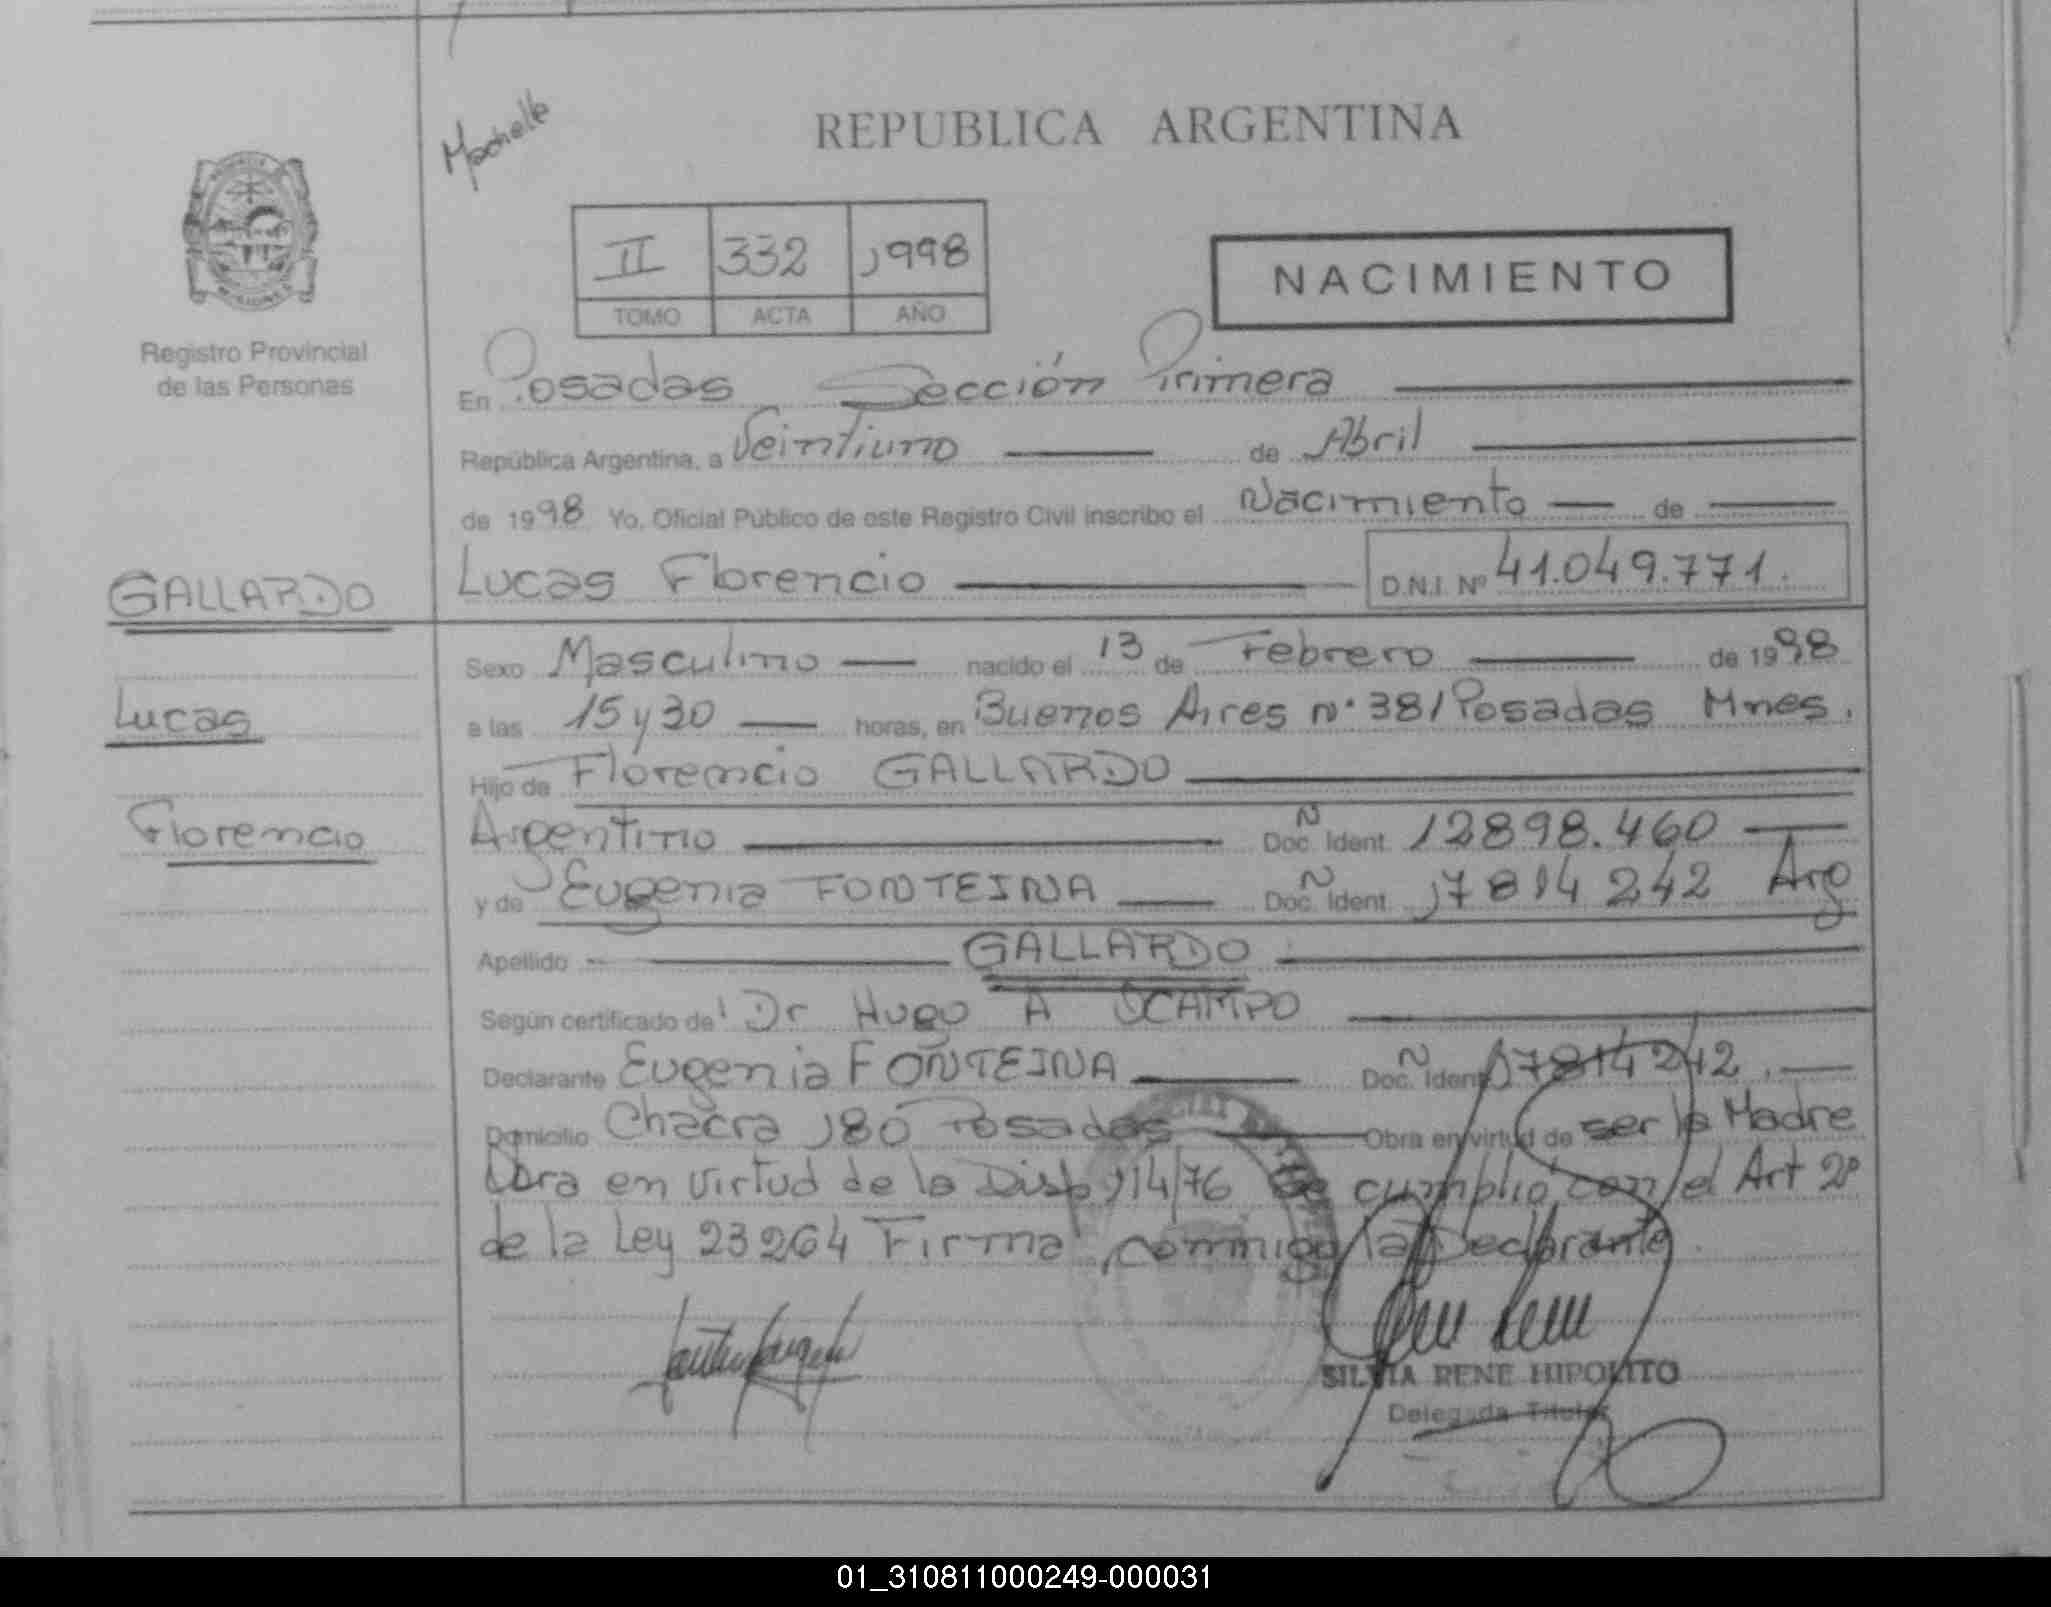 Machelle
REPUBLICA ARGENTINA
II 332 1998
TOMO ACTA AÑO
NACIMIENTO
Registro Provincial
de las Personas
En Posadas Sección Primera
República Argentina, a Veintiuno de Abril
de 1998 Yo, Oficial Público de este Registro Civil inscribo el Nacimiento de
GALLARDO
Lucas Florencio D.N.I. Nº 41.049.771.
Sexo Masculino nacido el 13 de Febrero de 1998
Lucas
a las 15 y 30 horas, en Buenos Aires nº 381 Posadas Mnes.
Hijo de Florencio GALLARDO
Florencio
Argentino Doc. Ident. N 12898.460
y de Eugenia FONTEINA Doc. Ident. N 17814242 Arg
Apellido GALLARDO
Según certificado de Dr Hugo A OCAMPO
Declarante Eugenia FONTEINA Doc. Ident. N 17814242.
Domicilio Chacra 180 Posadas Obra en virtud de ser la Madre
Obra en virtud de la Disp 114/76 Se cumplió con el Art 2º
de la Ley 23264 Firma conmigo la Declarante.
SILVIA RENE HIPOLITO
Delegada Titular
01_310811000249-000031